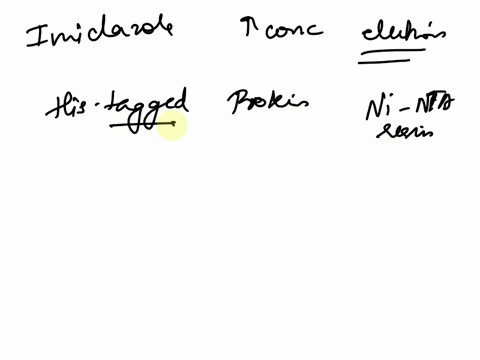 Imidazole ↑ conc elutions
His-tagged Protein Ni-NTA
resin